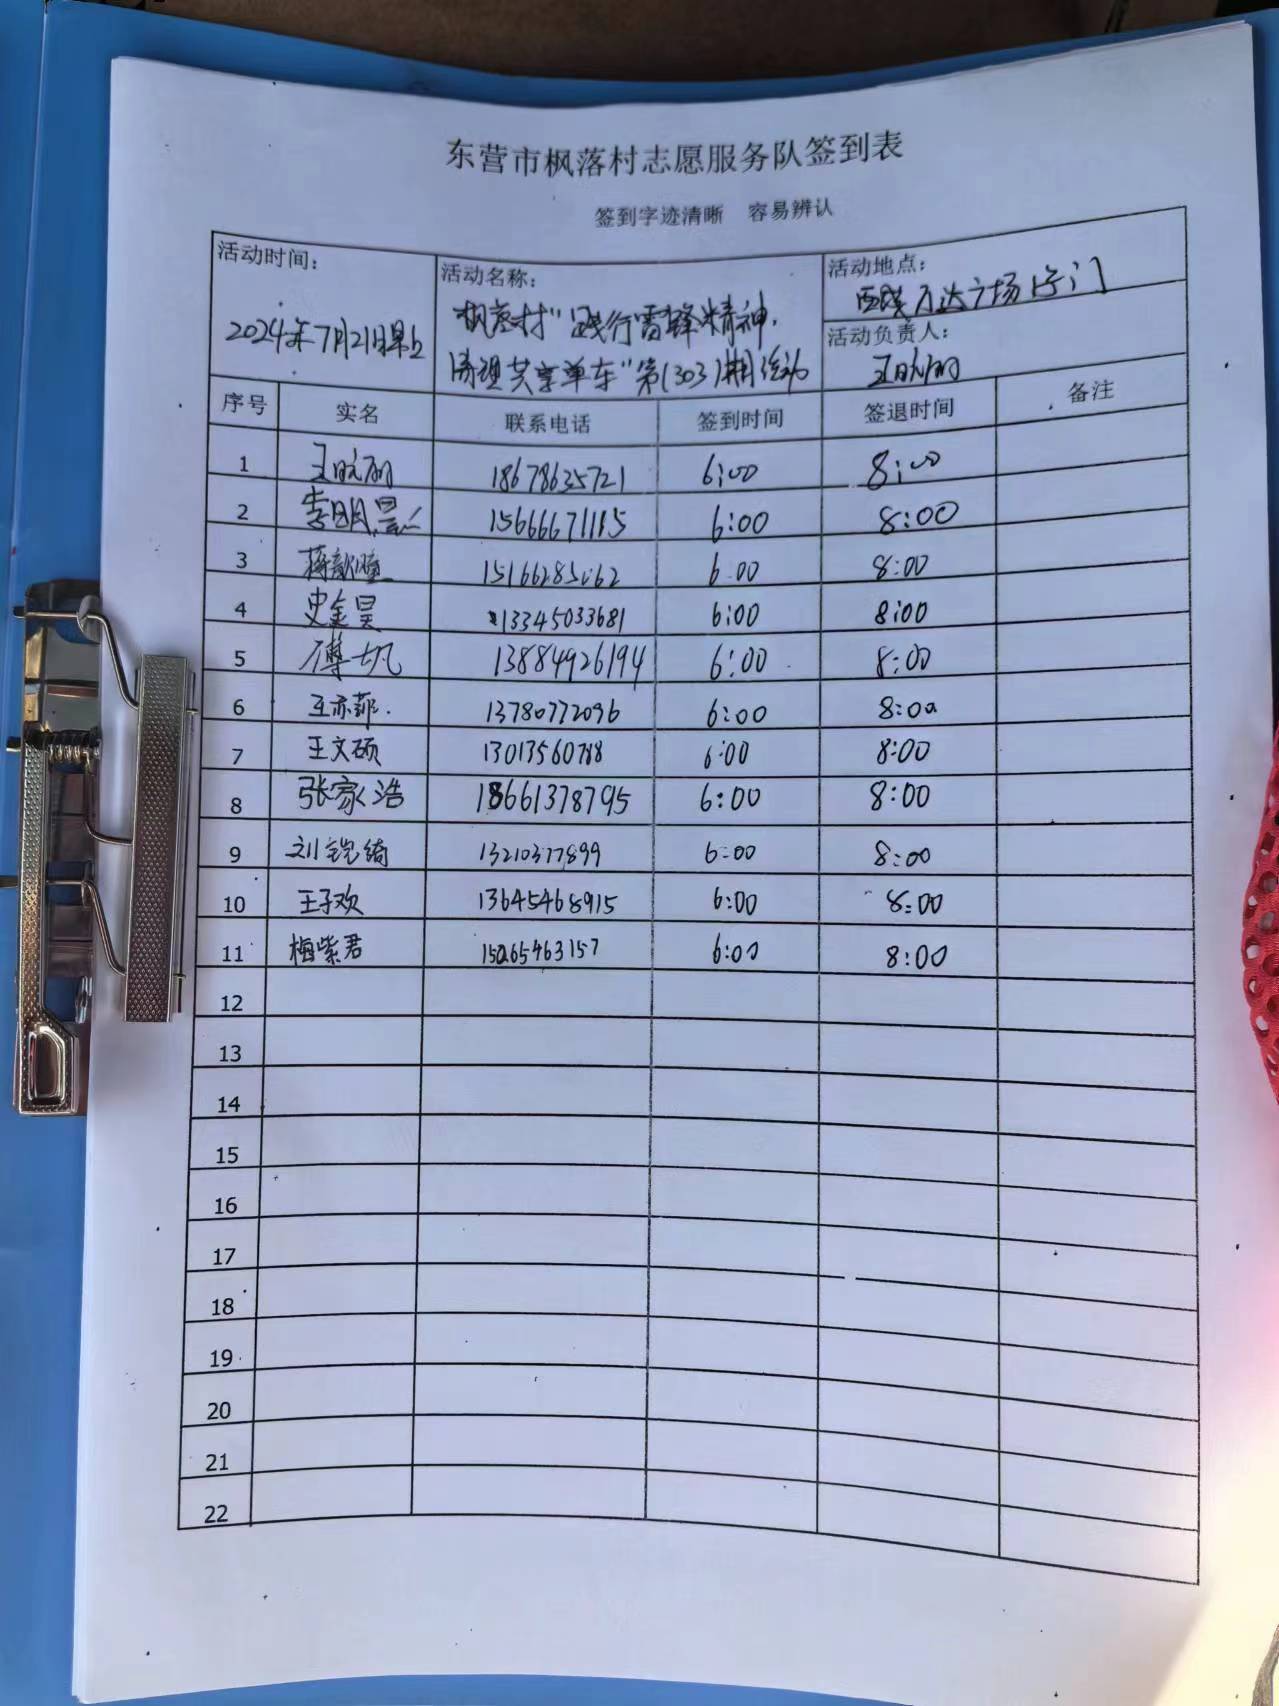 东营市枫落村志愿服务队签到表
签到字迹清晰 容易辨认
活动时间：
2024年7月21日早上
活动名称：
"枫落村"践行雷锋精神.
清理共享单车"第(303)期活动
活动地点：
西城万达广场1号门
活动负责人：
序号 实名 联系电话 签到时间 签退时间 备注
1 18678635721 6:00 8:00
2 李明昊 15666671115 6:00 8:00
3 15166285062 6:00 8:00
4 史金昊 13345033681 6:00 8:00
5 傅一帆 13884926194 6:00 8:00
6 王亦菲. 13780772096 6:00 8:00
7 王文硕 13013560788 6:00 8:00
8 张家浩 18661378795 6:00 8:00
9 刘铠绮 13210377899 6:00 8:00
10 王子欢 13645468915 6:00 8:00
11 梅紫君 15065463157 6:00 8:00
12
13
14
15
16
17
18
19
20
21
22